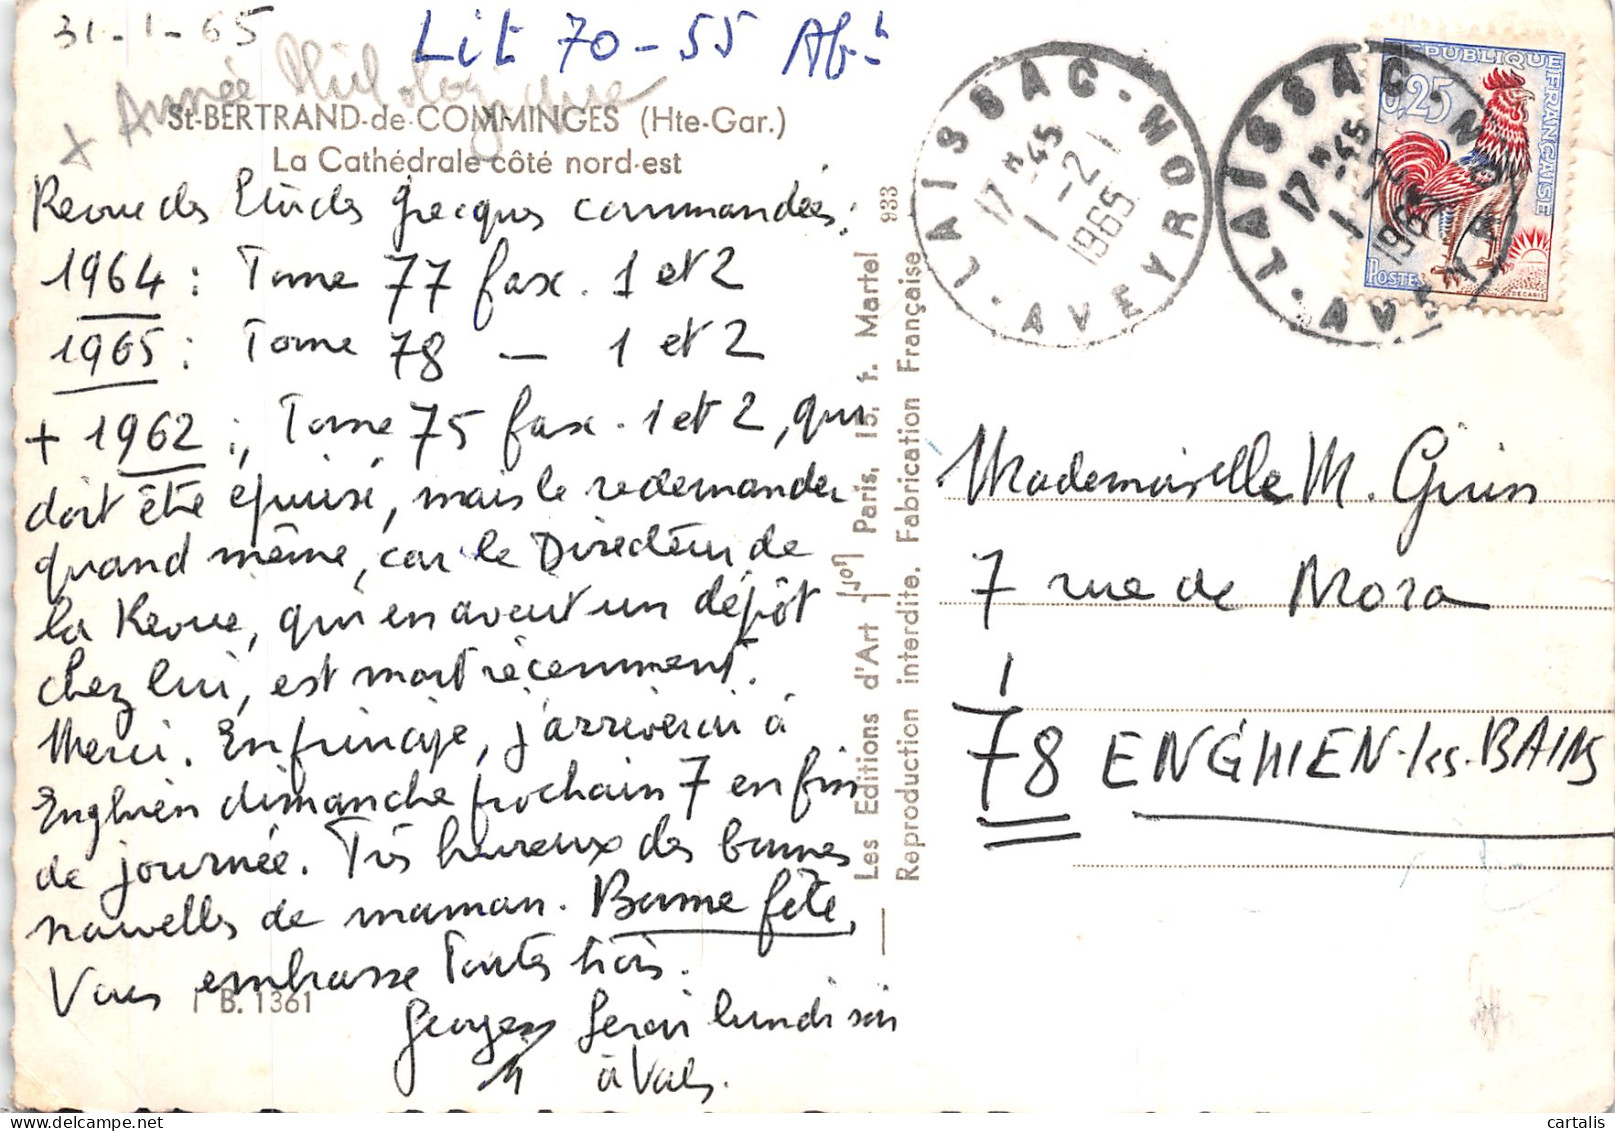 31-1-65
Lit 70-55 Af-h
+ Année Philologique
St-BERTRAND-de-COMMINGES (Hte-Gar.)
La Cathédrale côté nord-est
Revue des Etudes Grecques commandées :
1964 : Tome 77 fasc. 1 et 2
1965 : Tome 78 — 1 et 2
+ 1962 : Tome 75 fasc. 1 et 2, qui
doit être épuisé, mais le redemander
quand même, car le Directeur de
la Revue, qui en avait un dépôt
chez lui, est mort récemment.
Merci. En principe, j'arriverai à
Enghien dimanche prochain 7 en fin
de journée. Très heureux des bonnes
nouvelles de maman. Bonne fête.
Vous embrasse toutes trois.
Georges Serai lundi soir
à Vals.
I B. 1361
Les Editions d'Art "Jon" Paris, 15, r. Martel
Reproduction interdite. Fabrication Française
933
LAISSAC-MOR
17 H 45
1 - 2
1965
AVEYR
LAISSAC-MOR
17 H 45
1 - 2
1965
AVEYR
REPUBLIQUE FRANÇAISE
0,25
POSTES
DECARIS
Mademoiselle M. Guin
7 rue de Mora
78 ENGHIEN-les-BAINS
cartalis